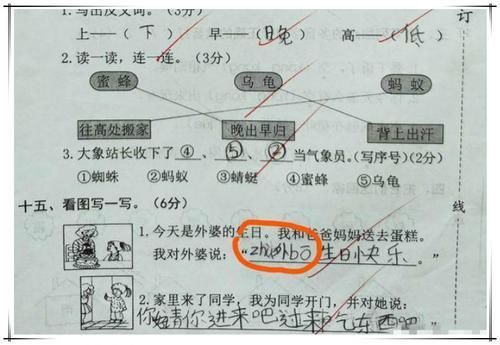 1.写出反义词。(3分)
订
上——(下) 早——(晚) 高——(低)
2.读一读,连一连。(3分)
蜜蜂 乌龟 蚂蚁
往高处搬家 晚出早归 背上出汗
3.大象站长收下了④、⑤、②当气象员。(写序号)(2分)
①蜘蛛 ②蚂蚁 ③蜻蜓 ④蜜蜂 ⑤乌龟
十五、看图写一写。(6分)
线
1.今天是外婆的生日。我和爸爸妈妈送去蛋糕。
我对外婆说:“zhù外bō生日快乐。”
2.家里来了同学,我为同学开门,并对她说:
你好请你进来吧过来吃东西吧